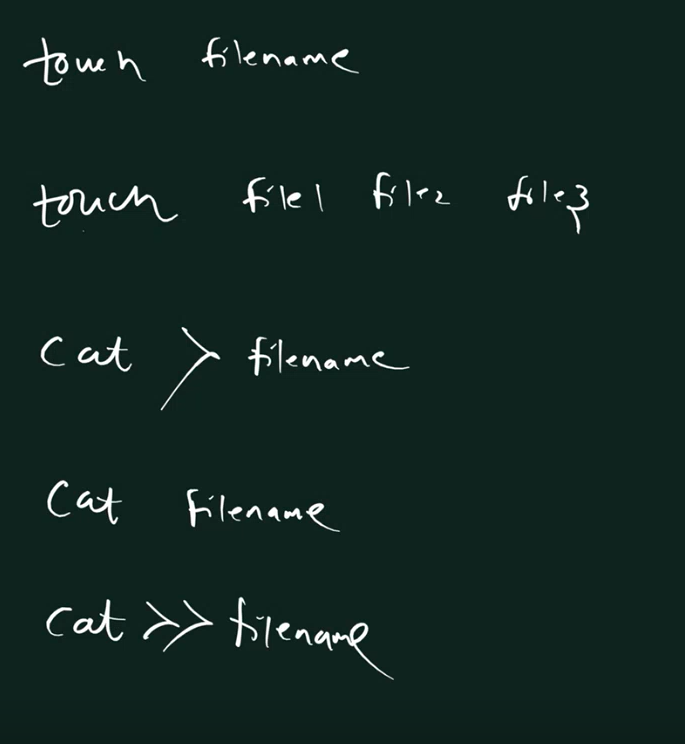 touch filename
touch file1 file2 file3
cat > filename
Cat filename
Cat >> filename